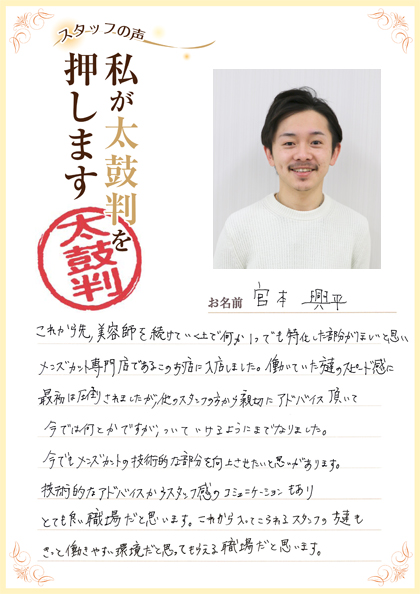 スタッフの声
私が太鼓判を
押します
太鼓判
お名前 宮本 興平
これから先、美容師を続けていく上で何か1つでも特化した部分がほしいと思い
メンズカット専門店であるこのお店に入店しました。働いていた方達のスピード感に
最初は圧倒されましたが、他のスタッフの方から親切にアドバイス頂いて
今では何とかですが、ついていけるようにまでなりました。
今でもメンズカットの技術的な部分を向上させたいと思いがあります。
技術的なアドバイスからスタッフ感のコミュニケーションもあり
とても良い職場だと思います。これから入ってこられるスタッフの方達も
きっと働きやすい環境だと思ってもらえる職場だと思います。